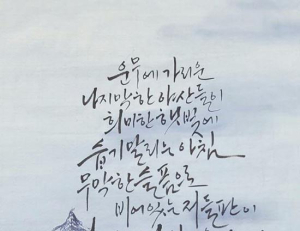 운무에 가리운
나지막한 야산들이
희미한 햇빛에
습기 말리는 아침
무막한 슬픔으로
비어있는 저 들판이